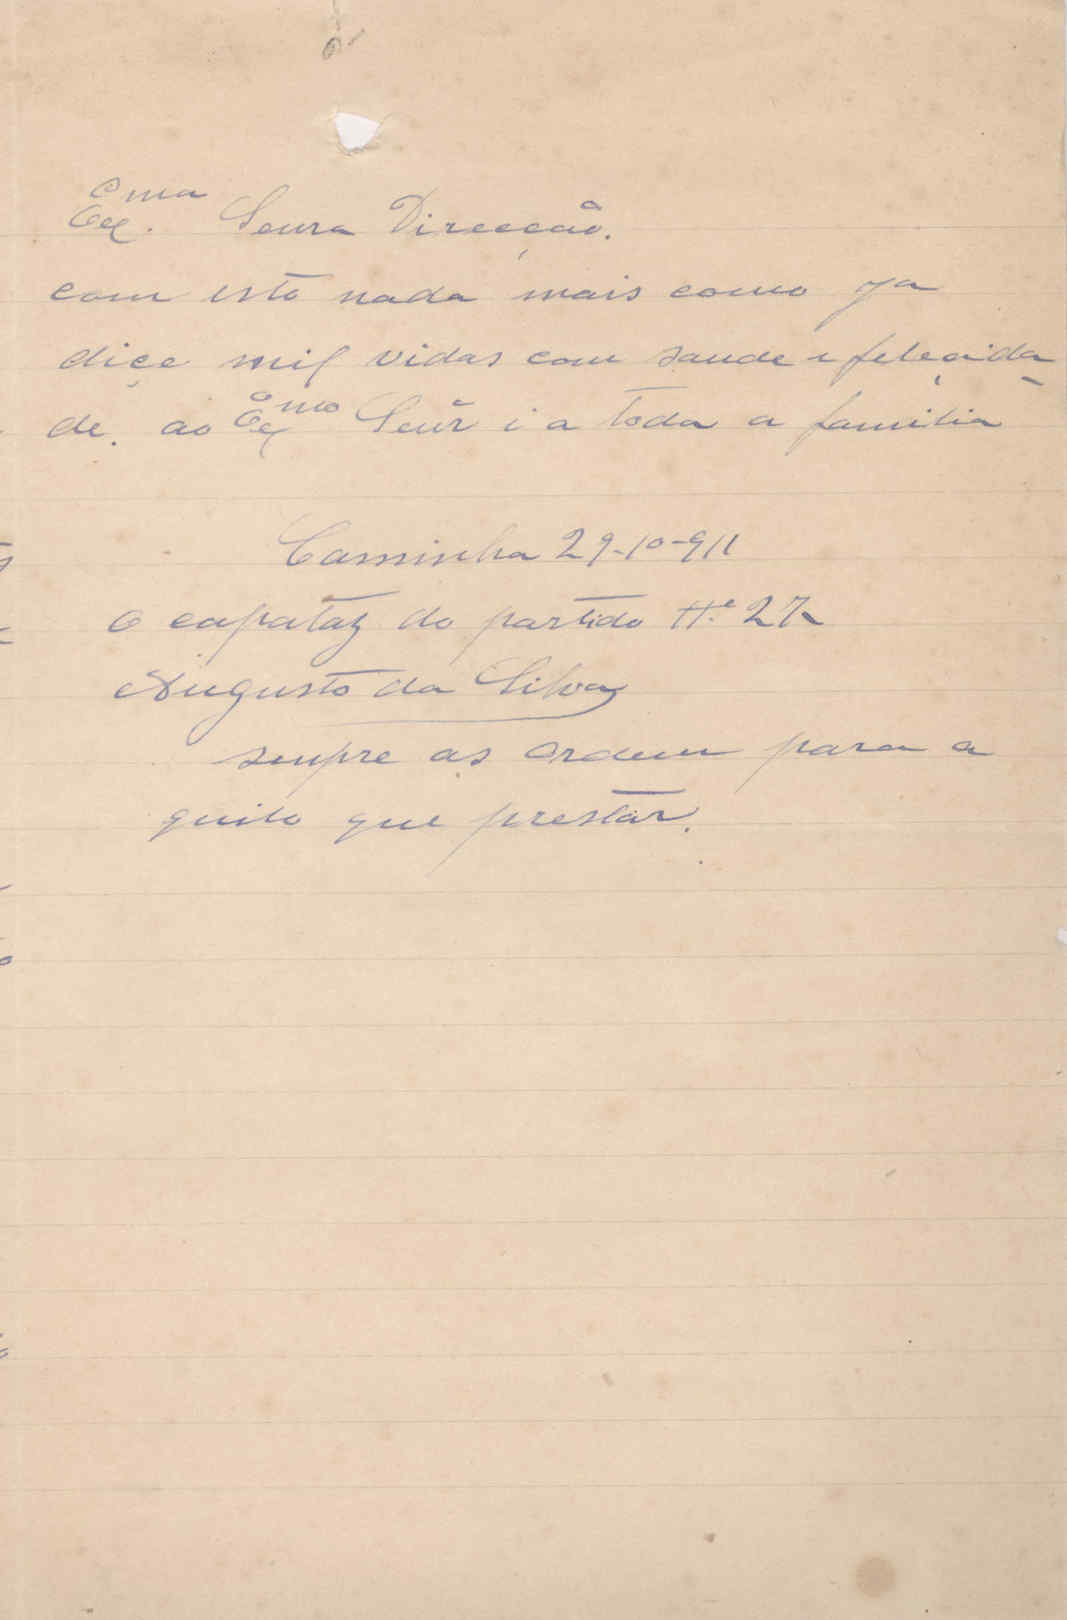 Exma. Senra Direcção.
com isto nada mais como ja
diçe mil vidas com saude e feleçida
de. ao Exmo Seur i a toda a familia
Camminha 29-10-911
O capataz do partido Nº 27
Augusto da Silva
senpre as ordem para a
quilo que prestar.